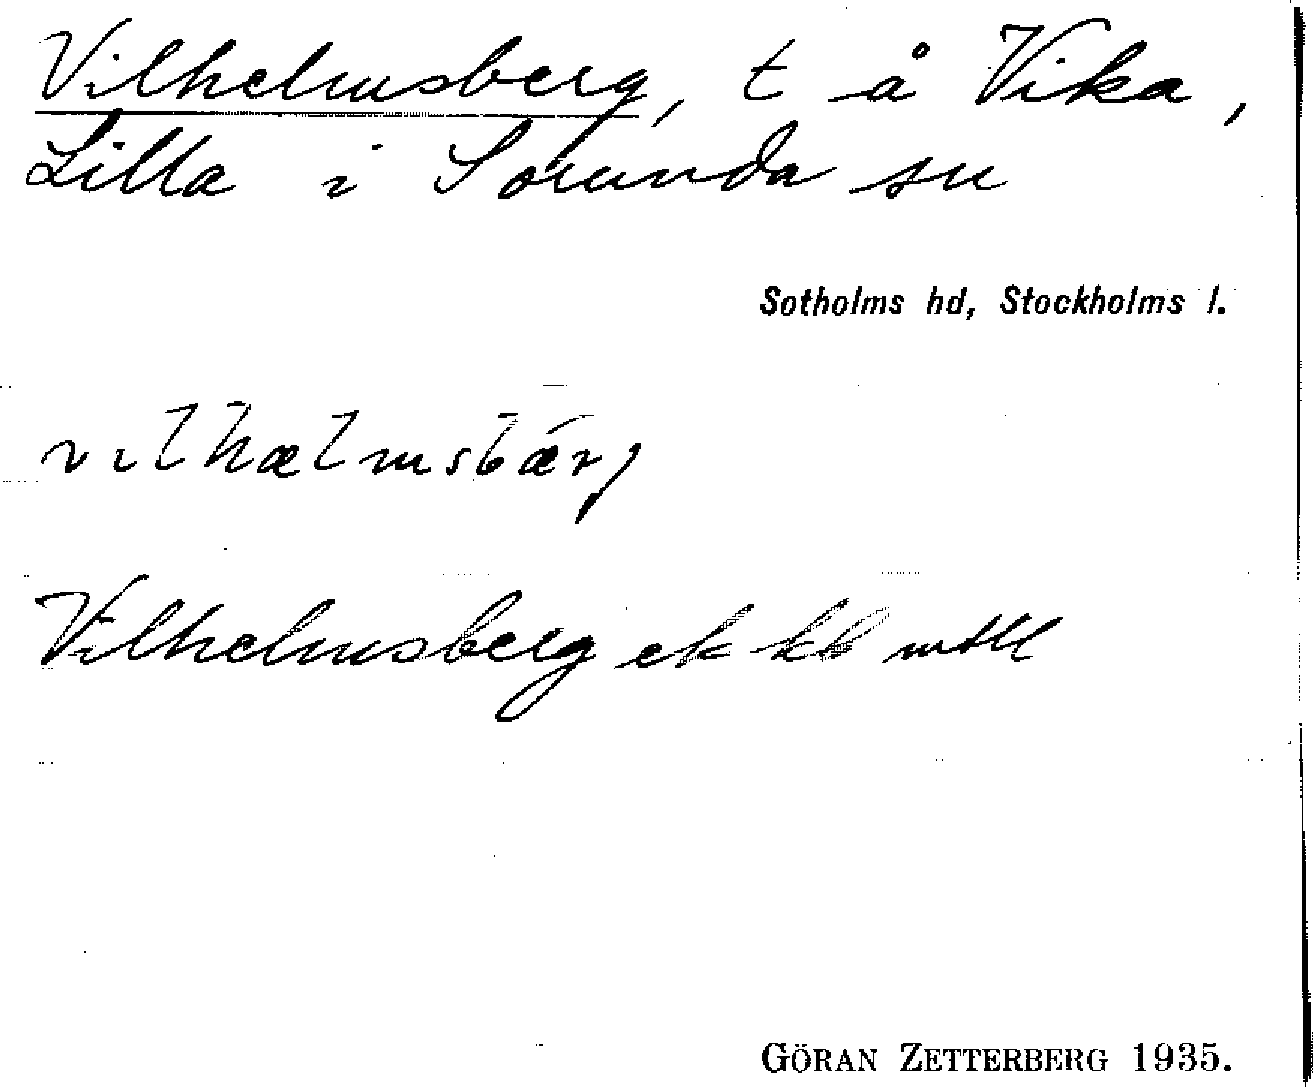 Vilhelmsberg, t å Vika,
Lilla i Sorunda sn
Sotholms hd, Stockholms l.
vilhælmsbærj
Vilhelmsberg ek kb mtll
GÖRAN ZETTERBERG 1935.